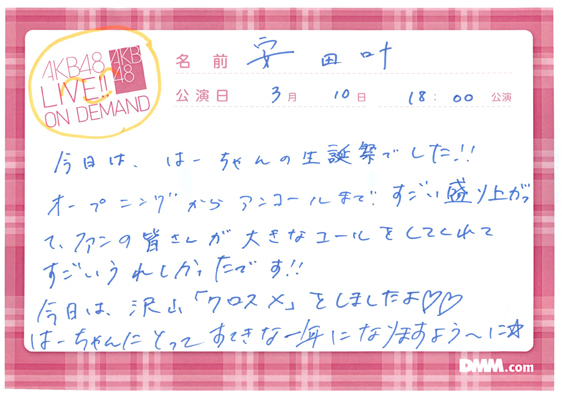 AKB48
LIVE!!
ON DEMAND
AKB
48
名前 安田叶
公演日 3月 10日 18:00 公演
今日は、はーちゃんの生誕祭でした!!
オープニングからアンコールまで!すごい盛り上がっ
て、ファンの皆さんが大きなコールをしてくれて
すごいうれしかったです!!
今日は、沢山「クロスメ」をしましたよ♡♡
はーちゃんにとってすてきな一年になりますよう〜に☆
DMM.com